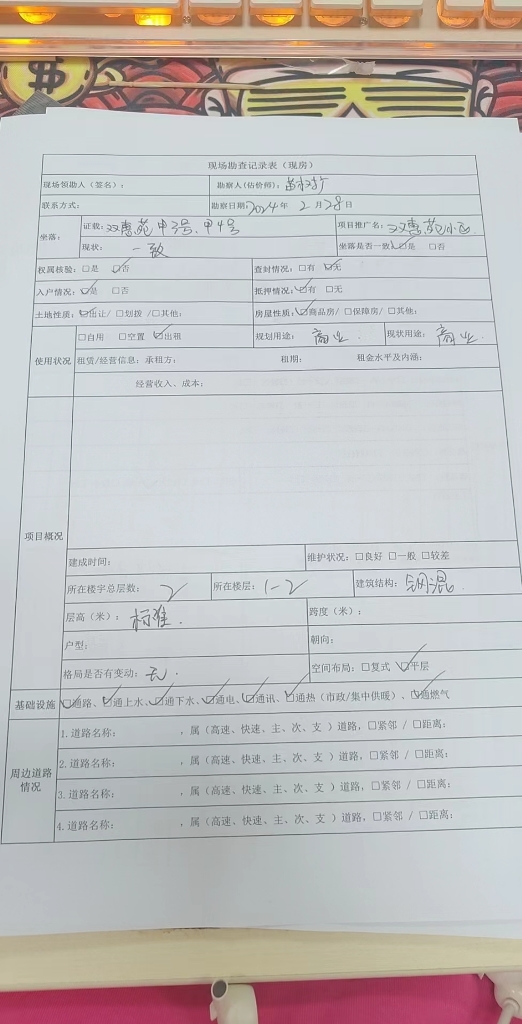 现场勘查记录表（现房）
现场领勘人（签名）： 勘察人(估价师)：
联系方式： 勘察日期：2024年 2月28日
坐落： 证载：双惠苑甲3号、甲4号 项目推广名：双惠苑小区
现状：一致 坐落是否一致：☑是 □否
权属核验：□是 ☑否 查封情况：□有 ☑无
入户情况：☑是 □否 抵押情况：☑有 □无
土地性质：☑出让/ □划拨 /□其他： 房屋性质：☑商品房/ □保障房/ □其他：
使用状况 □自用 □空置 ☑出租 规划用途：商业 现状用途：商业
租赁/经营信息：承租方： 租期： 租金水平及内涵：
经营收入、成本：
项目概况
建成时间： 维护状况：□良好 □一般 □较差
所在楼宇总层数：2 所在楼层：1-2 建筑结构：钢混
层高（米）：标准. 跨度（米）：
户型： 朝向：
格局是否有变动：无. 空间布局：□复式 ☑平层
基础设施 ☑通路、☑通上水、☑通下水、☑通电、☑通讯、☑通热（市政/集中供暖）、☑通燃气
周边道路情况 1.道路名称： ，属（高速、快速、主、次、支 ）道路，□紧邻 / □距离：
2.道路名称： ，属（高速、快速、主、次、支 ）道路，□紧邻 / □距离：
3.道路名称： ，属（高速、快速、主、次、支 ）道路，□紧邻 / □距离：
4.道路名称： ，属（高速、快速、主、次、支 ）道路，□紧邻 / □距离：